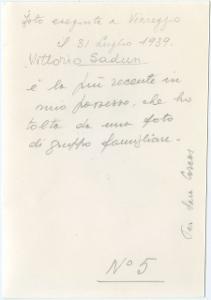 Foto eseguita a Viareggio
il 31 Luglio 1939.
Vittorio Sadun
è la più recente in
mio possesso, che ho
tolta da una foto
di gruppo famigliare.
Nº 5
Per